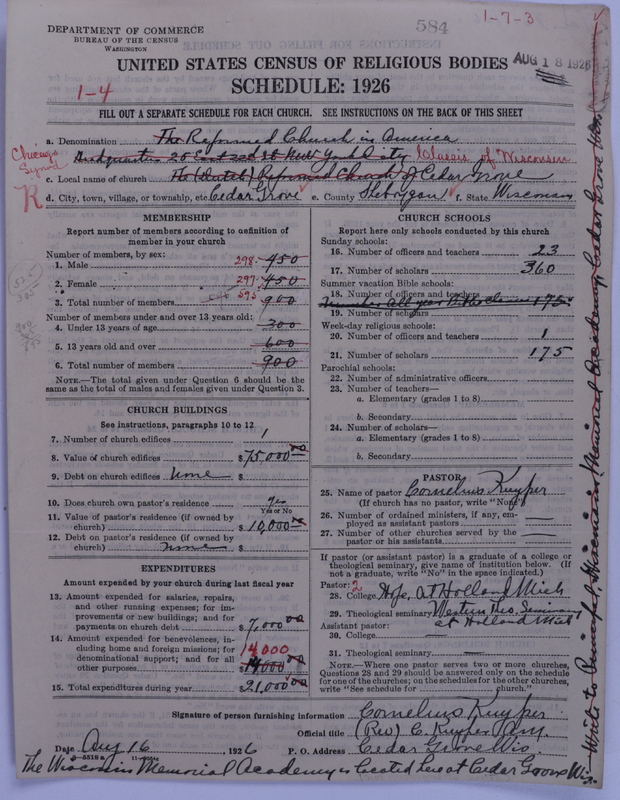 584
1-7-3
DEPARTMENT OF COMMERCE
BUREAU OF THE CENSUS
WASHINGTON
AUG 18 1926
UNITED STATES CENSUS OF RELIGIOUS BODIES
1-4
SCHEDULE: 1926
FILL OUT A SEPARATE SCHEDULE FOR EACH CHURCH. SEE INSTRUCTIONS ON THE BACK OF THIS SHEET
a. Denomination The Reformed Church in America
Chicago Synod
Headquarters 25 East 22d St New York City Classis of Wisconsin
R
c. Local name of church The (Dutch) Reformed Church of Cedar Grove
d. City, town, village, or township, etc. Cedar Grove e. County Sheboygan f. State Wisconsin
MEMBERSHIP
Report number of members according to definition of
member in your church
Number of members, by sex:
1. Male 298 450
2. Female 297 450
3. Total number of members 595 900
Number of members under and over 13 years old:
4. Under 13 years of age 300
5. 13 years old and over 600
6. Total number of members 900
NOTE.—The total given under Question 6 should be the
same as the total of males and females given under Question 3.
CHURCH BUILDINGS
See instructions, paragraphs 10 to 12
7. Number of church edifices 1
8. Value of church edifices $75,000.00
9. Debt on church edifices none $
10. Does church own pastor's residence yes
Yes or No
11. Value of pastor's residence (if owned by
church) $10,000.00
12. Debt on pastor's residence (if owned by
church) none $
EXPENDITURES
Amount expended by your church during last fiscal year
13. Amount expended for salaries, repairs,
and other running expenses; for im-
provements or new buildings; and for
payments on church debt $7,000.00
14. Amount expended for benevolences, in-
cluding home and foreign missions; for 14000
denominational support; and for all
other purposes 14,000.00
15. Total expenditures during year $21,000.00
CHURCH SCHOOLS
Report here only schools conducted by this church
Sunday schools:
16. Number of officers and teachers 23
17. Number of scholars 360
Summer vacation Bible schools:
18. Number of officers and teachers
19. Number of scholars 175
Week-day religious schools:
20. Number of officers and teachers 1
21. Number of scholars 175
Parochial schools:
22. Number of administrative officers
23. Number of teachers—
a. Elementary (grades 1 to 8)
b. Secondary
24. Number of scholars—
a. Elementary (grades 1 to 8)
b. Secondary
PASTOR
25. Name of pastor Cornelius Kuyper
(If church has no pastor, write "None")
26. Number of ordained ministers, if any, em-
ployed as assistant pastors
27. Number of other churches served by the
pastor or his assistants
If pastor (or assistant pastor) is a graduate of a college or
theological seminary, give name of institution below. (If
not a graduate, write "No" in the space indicated.)
Pastor: 2
28. College Hope, at Holland Mich
29. Theological seminary Western Theo. Seminary
Assistant pastor: at Holland Mich
30. College
31. Theological seminary
NOTE.—Where one pastor serves two or more churches,
Questions 28 and 29 should be answered only on the schedule
for one of the churches; on the schedules for the other churches,
write "See schedule for church."
Signature of person furnishing information Cornelius Kuyper
Official title (Rev) C. Kuyper
Date Aug 16, 1926 P. O. Address Cedar Grove Wis.
The Wisconsin Memorial Academy is located here at Cedar Grove Wis.
Write to Principal, Wisconsin Memorial Academy, Cedar Grove Wis.